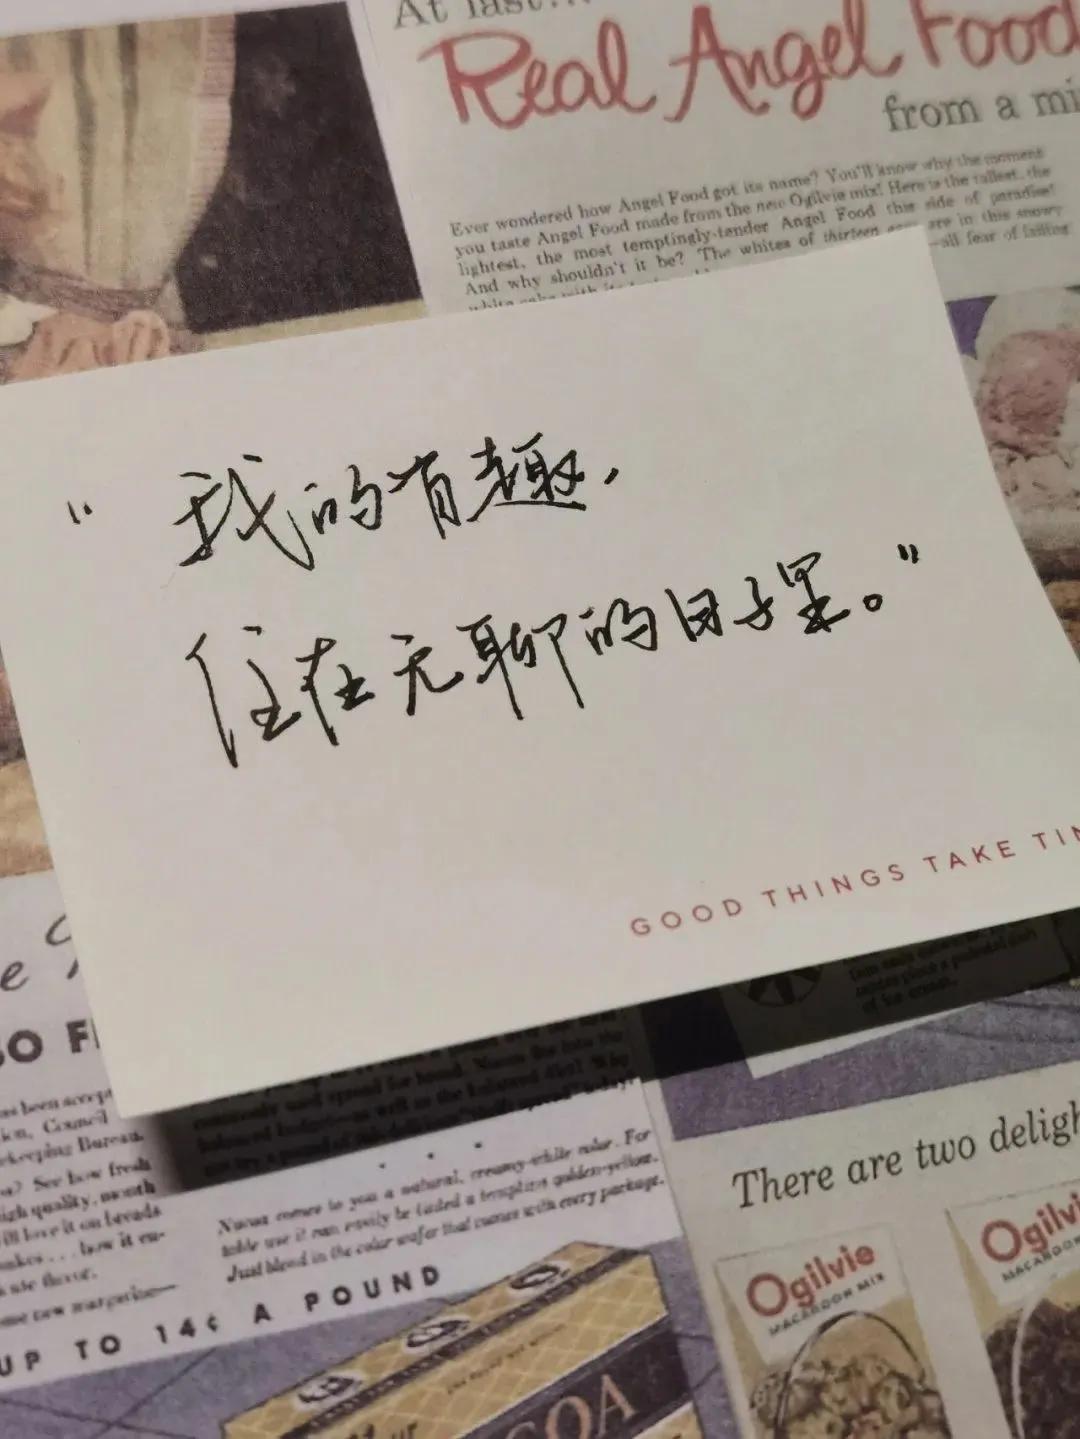 At last...
Real Angel Food
from a mi
Ever wondered how Angel Food got its name? You'll know why the moment
you taste Angel Food made from the new Ogilvie mix! Here is the tallest, the
lightest, the most temptingly-tender Angel Food this side of paradise!
And why shouldn't it be? The whites of thirteen eggs are in this snowy
—all fear of failing
“我的有趣，
住在无聊的日子里。”
GOOD THINGS TAKE TIM
SO F
has been accept
ion, Council
keeping Bureau.
See how fresh
high quality, month
ill love it on breads
akes . . . how it en-
Nucoa comes to you a natural, creamy-white color. For
table use it can easily be tinted a tempting golden-yellow.
Just blend in the color wafer that comes with every package.
UP TO 14¢ A POUND
There are two deligh
Ogilvie
MACAROON MIX
Ogilvi
MACAROON
OA